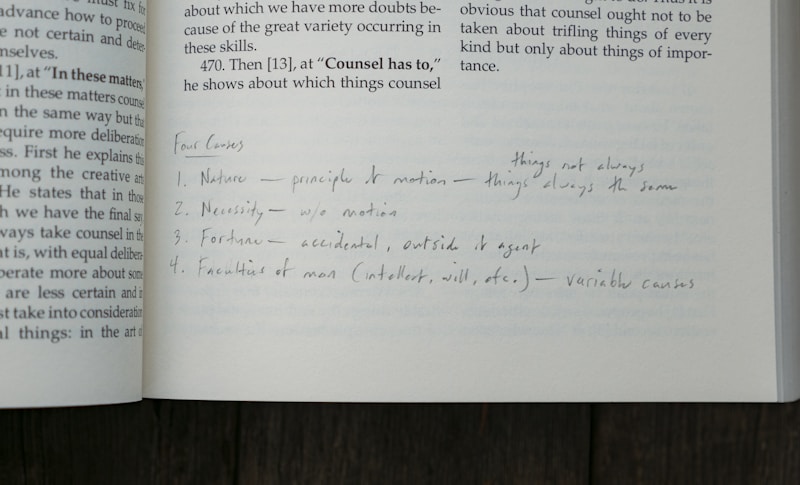 must fix for
advance how to proceed
e not certain and deter-
nselves.
11], at "In these matters,"
in these matters counsel
n the same way but tha
equire more deliberation
ss. First he explains this
mong the creative arts
He states that in those
h we have the final say
ways take counsel in the
at is, with equal delibera
berate more about some
are less certain and in
st take into consideration
al things: in the art o
about which we have more doubts be-
cause of the great variety occurring in
these skills.
470. Then [13], at "Counsel has to,"
he shows about which things counsel
obvious that counsel ought not to be
taken about trifling things of every
kind but only about things of impor-
tance.
Four Causes
things not always
1. Nature — principle of motion — things always the same
2. Necessity — w/o motion
3. Fortune — accidental, outside it agent
4. Faculties of man (intellect, will, etc.) — variable causes